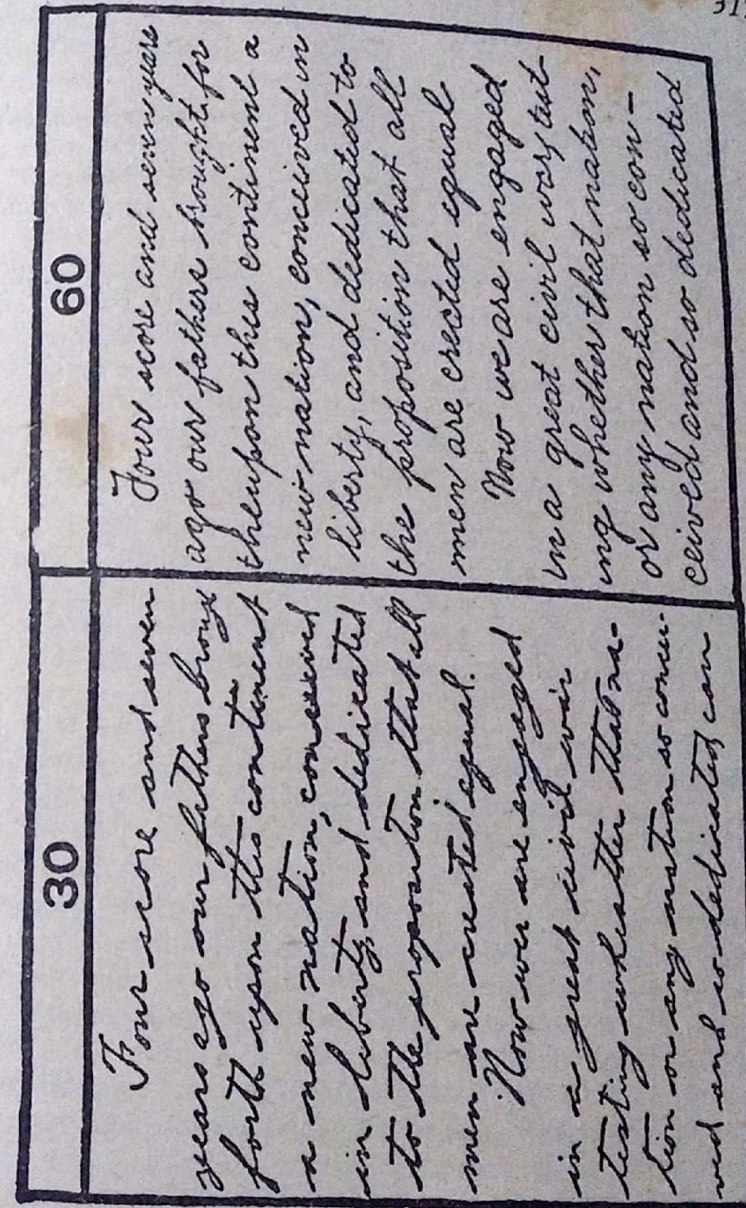 31
30
Four score and seven
years ago our fathers broug
forth upon this continent
a new nation, conceived
in liberty, and dedicated
to the proposition that all
men are created equal.
Now we are engaged
in a great civil war
testing wheather that na-
tion or any nation so concei-
ved and so dedicated can
60
Four score and seven years
ago our fathers brought for
th upon this continent a
new nation, conceived in
liberty, and dedicated to
the proposition that all
men are created equal
Now we are engaged
in a great civil war, test
ing whether that nation,
or any nation so con-
ceived and so dedicated